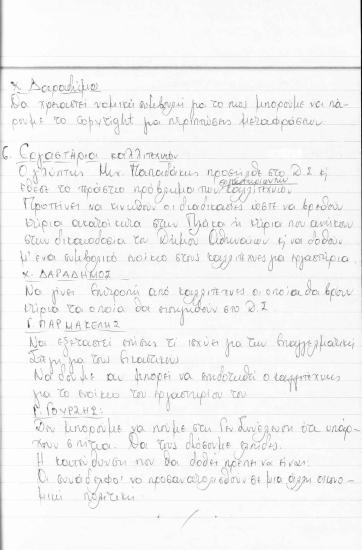 Χ. Δαραδήμος
Θα χρειαστεί νομική συμβουλή για το πως μπορούμε να πά-
ρουμε το copyright για περιπτώσεις μεταφράσεων.
6. Εργαστήρια καλλιτεχνών
Ο γλύπτης Μιχ. Παπαδάκης προσήλθε στο Δ.Σ κ'
έθεσε το τεράστιο πρόβλημα των εργαστηρίων των καλλιτεχνών
Προτείνει να κινηθούν οι διαδικασίες ώστε να βρεθούν
κτίρια ακατοίκητα στην Πλάκα ή κτίρια που ανήκουν
στην δικαιοδοσία του Δήμου Αθηναίων κ' να δοθούν
μ' ένα συμβολικό ενοίκιο στους καλλιτέχνες για εργαστήρια.
Χ. ΔΑΡΑΔΗΜΟΣ
Να γίνει επιτροπή από καλλιτέχνες οι οποίοι θα βρουν
κτίρια τα οποία θα εισηγηθούν στο Δ.Σ
Γ. ΠΑΡΜΑΚΕΛΗΣ
Να εξεταστεί επίσης τι ισχύει για την επαγγελματική
στέγη για του εικαστικού
Να δούμε αν μπορεί να επιδοτηθεί ο καλλιτέχνης
για το ενοίκιο του εργαστηρίου του
ΓΟΥΡΖΗΣ:
Δεν μπορούμε να πούμε στην Γεν. Συνέλευση ότι υπάρ-
χουν σπίτια. Θα τους δώσουμε ελπίδες.
Η κατεύθυνση που θα δοθεί πρέπει να είναι:
Οι συνάδελφοι να προσανατολισθούν σε μια άλλη οικονο-
μική πολιτική.